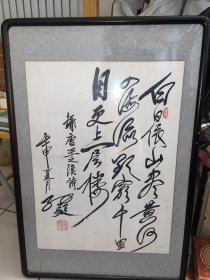 白日依山尽黄河
入海流欲穷千里
目更上层楼
录唐王之涣诗